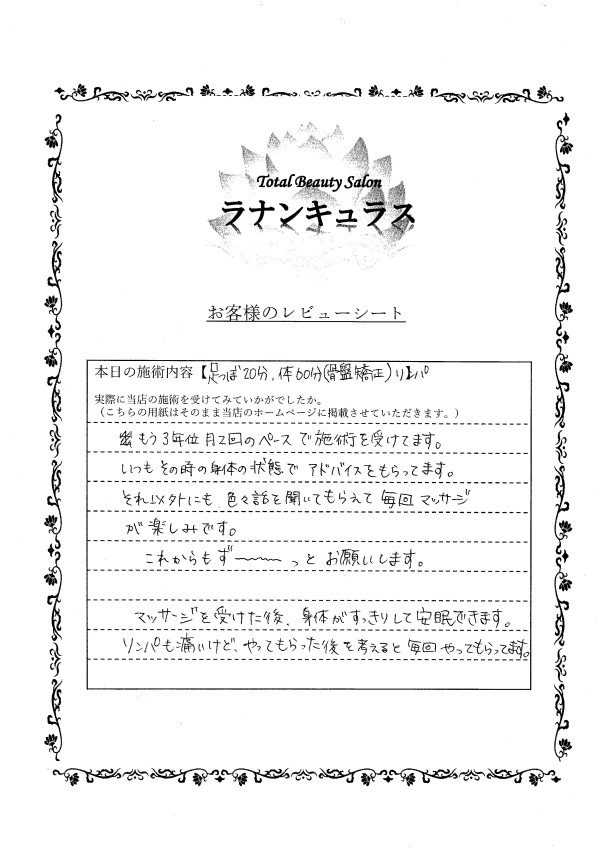 Total Beauty Salon
ラナンキュラス
お客様のレビューシート
本日の施術内容【足つぼ20分,体60分(骨盤矯正)リンパ
実際に当店の施術を受けてみていかがでしたか。
（こちらの用紙はそのまま当店のホームページに掲載させていただきます。）
もう3年位月2回のペースで施術を受けてます。
いつもその時の身体の状態でアドバイスをもらってます。
それ以外にも、色々話を聞いてもらえて毎回マッサージ
が楽しみです。
これからもず〜〜〜っとお願いします。
マッサージを受けた後、身体がすっきりして安眠できます。
リンパも痛いけど、やってもらった後を考えると毎回やってもらってます。